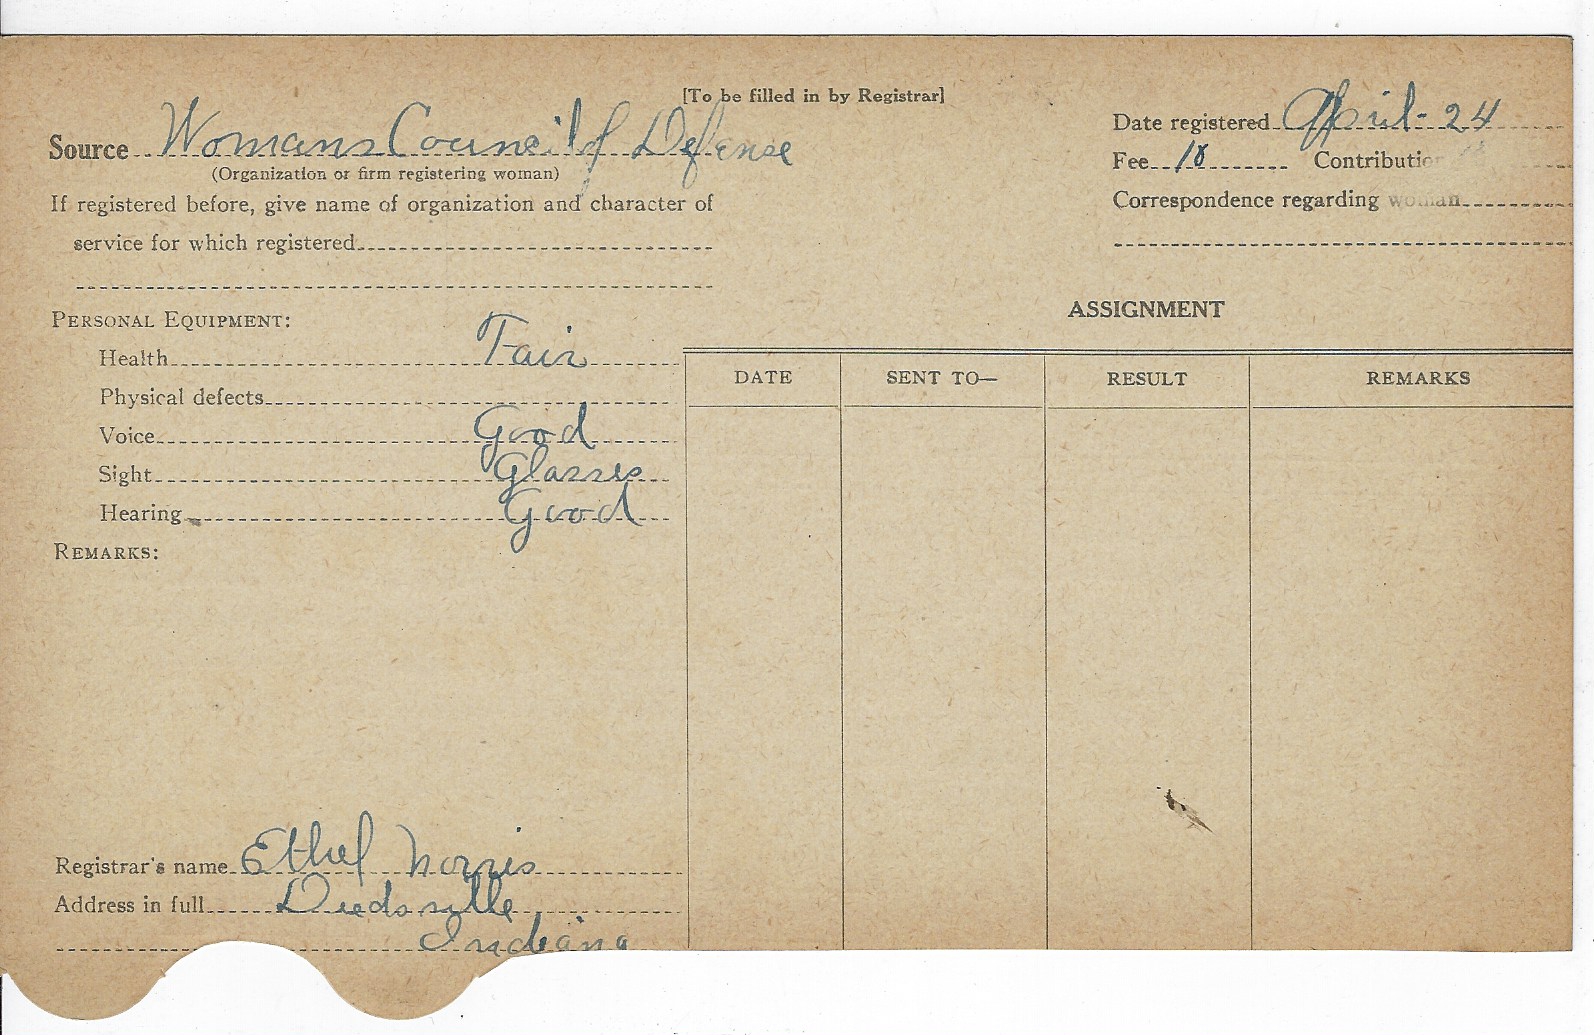 [To be filled in by Registrar]
Source Womans Council of Defense
(Organization or firm registering woman)
If registered before, give name of organization and character of
service for which registered
Date registered April - 24
Fee 10 Contributio
Correspondence regarding woman
PERSONAL EQUIPMENT:
Health Fair
Physical defects
Voice Good
Sight Glasses
Hearing Good
REMARKS:
ASSIGNMENT
DATE SENT TO— RESULT REMARKS
Registrar's name Ethel Norris
Address in full
Indiana